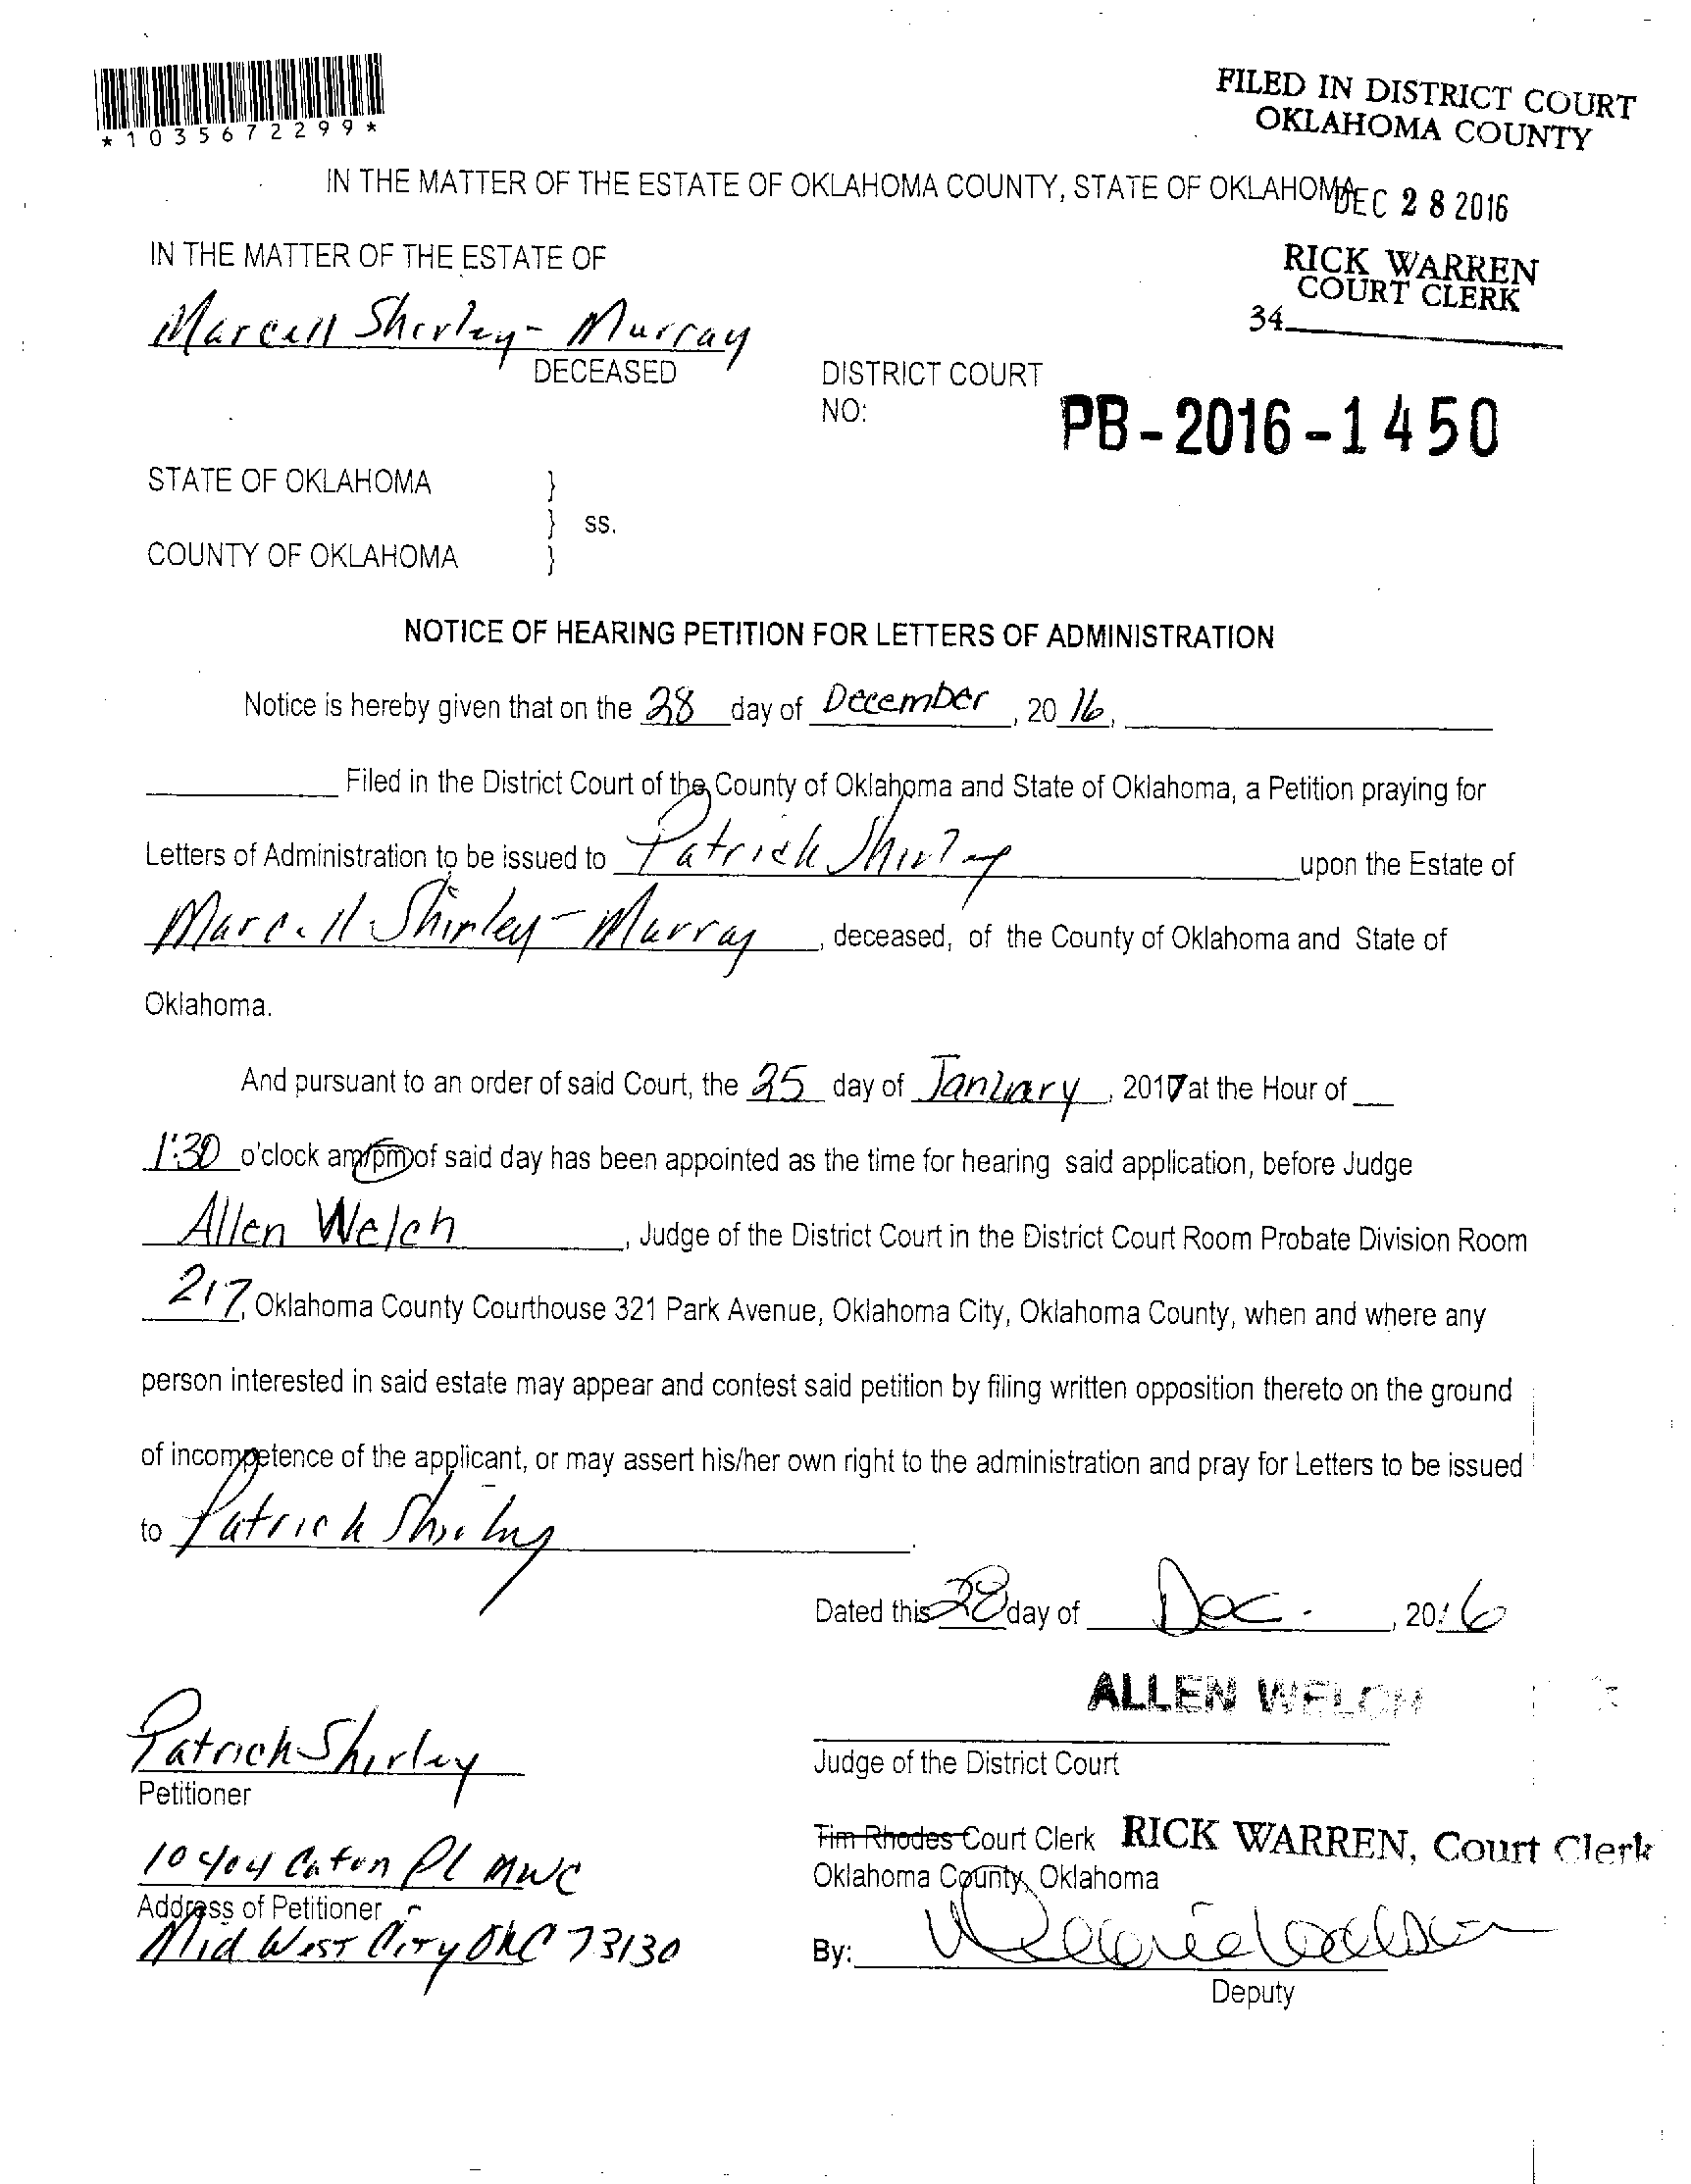 *1035672299*
FILED IN DISTRICT COURT
OKLAHOMA COUNTY
IN THE MATTER OF THE ESTATE OF OKLAHOMA COUNTY, STATE OF OKLAHOMA
DEC 28 2016
IN THE MATTER OF THE ESTATE OF
RICK WARREN
COURT CLERK
34
Marcell Shirley-Murray
DECEASED
DISTRICT COURT
NO:
PB-2016-1450
STATE OF OKLAHOMA }
} ss.
COUNTY OF OKLAHOMA }
NOTICE OF HEARING PETITION FOR LETTERS OF ADMINISTRATION
Notice is hereby given that on the 28 day of December, 20 16,
Filed in the District Court of the County of Oklahoma and State of Oklahoma, a Petition praying for
Letters of Administration to be issued to Patrick Shirley upon the Estate of
Marcell Shirley-Murray, deceased, of the County of Oklahoma and State of
Oklahoma.
And pursuant to an order of said Court, the 25 day of January, 2017 at the Hour of
1:30 o'clock am/pm of said day has been appointed as the time for hearing said application, before Judge
Allen Welch, Judge of the District Court in the District Court Room Probate Division Room
217, Oklahoma County Courthouse 321 Park Avenue, Oklahoma City, Oklahoma County, when and where any
person interested in said estate may appear and contest said petition by filing written opposition thereto on the ground
of incompetence of the applicant, or may assert his/her own right to the administration and pray for Letters to be issued
to Patrick Shirley.
Dated this 28 day of Dec., 2016
ALLEN WELCH
Patrick Shirley
Judge of the District Court
Petitioner
Tim Rhodes Court Clerk RICK WARREN, Court Clerk
10404 Caton Pl MWC
Oklahoma County, Oklahoma
Address of Petitioner
Mid West City OKC 73130
By:
Deputy